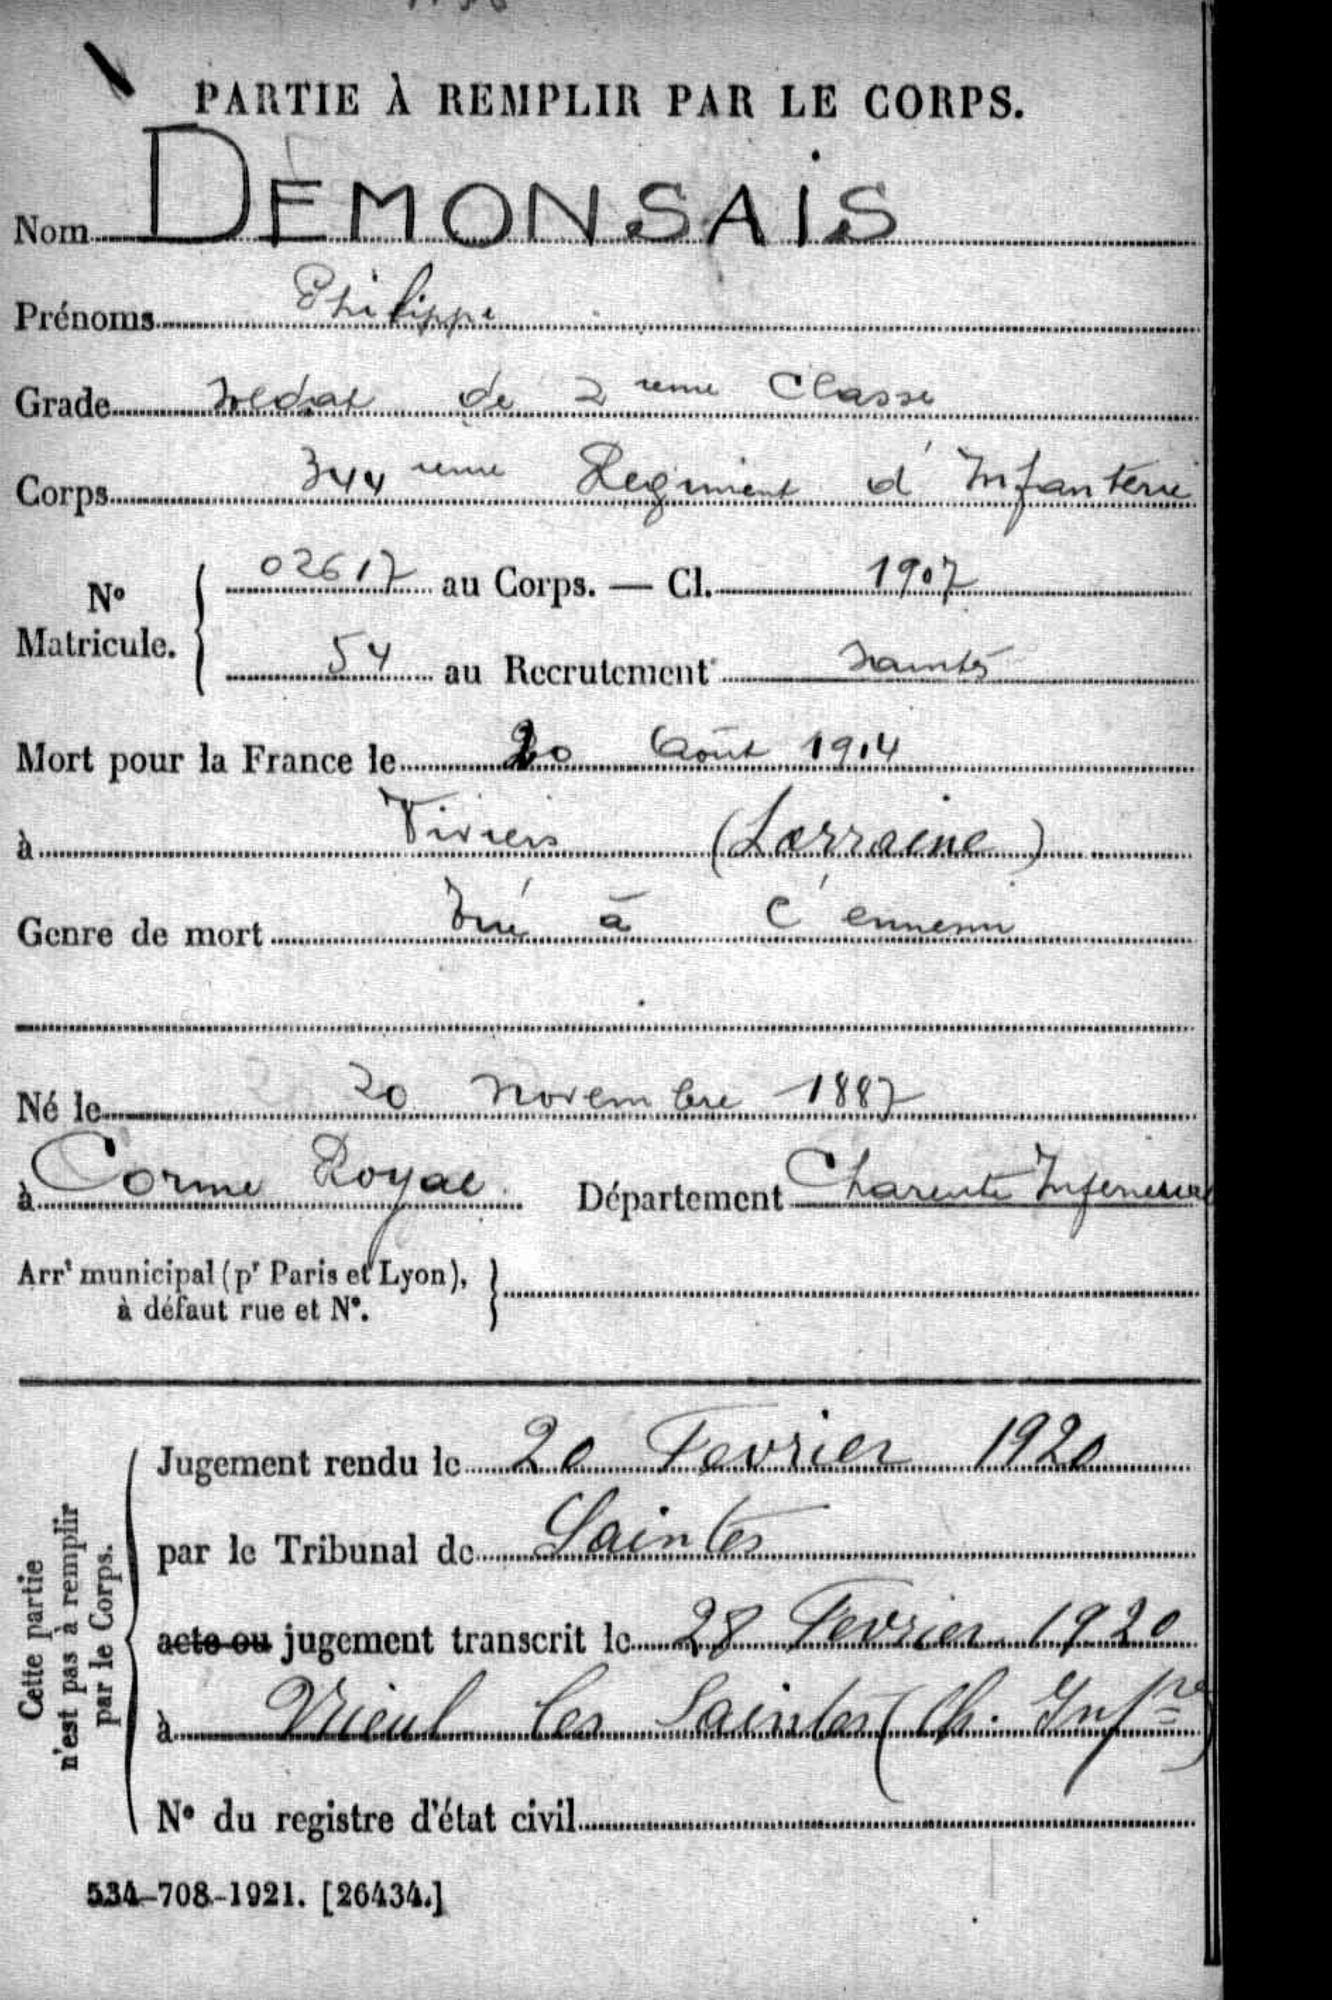 PARTIE À REMPLIR PAR LE CORPS.
Nom DEMONSAIS
Prénoms Philippe
Grade Soldat de 2 ieme Classe
Corps 344 ieme Regiment d' Infanterie
N° Matricule. { 02617 au Corps. — Cl. 1907
54 au Recrutement Saintes
Mort pour la France le 20 Août 1914
à Viviers (Lorraine)
Genre de mort Tué à l'ennemi
Né le 20 Novembre 1887
à Corme Royal Département Charente Inferieure
Arrt municipal (pr Paris et Lyon),
à défaut rue et N°. }
Cette partie
n'est pas à remplir
par le Corps.
Jugement rendu le 20 Fevrier 1920
par le Tribunal de Saintes
acte ou jugement transcrit le 28 Fevrier 1920
à les Saintes (Ch. Infre)
N° du registre d'état civil
534-708-1921. [26434.]